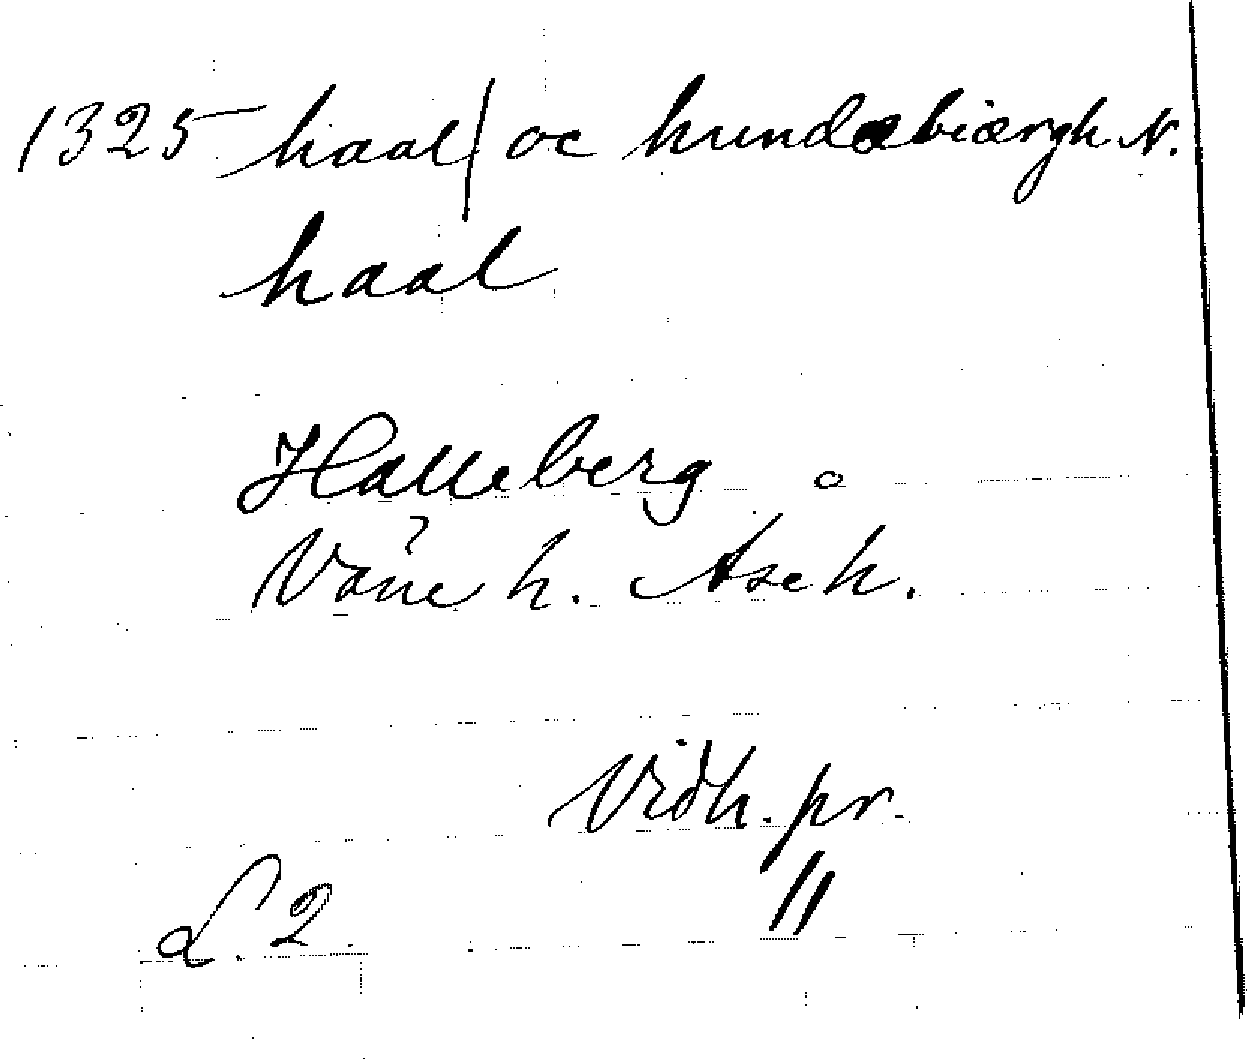 1325 haal/ oc hundæbiærgh N.
haal
Halleberg o
Väne h. Äs eh.
Vidh. pr.
L. 2. //